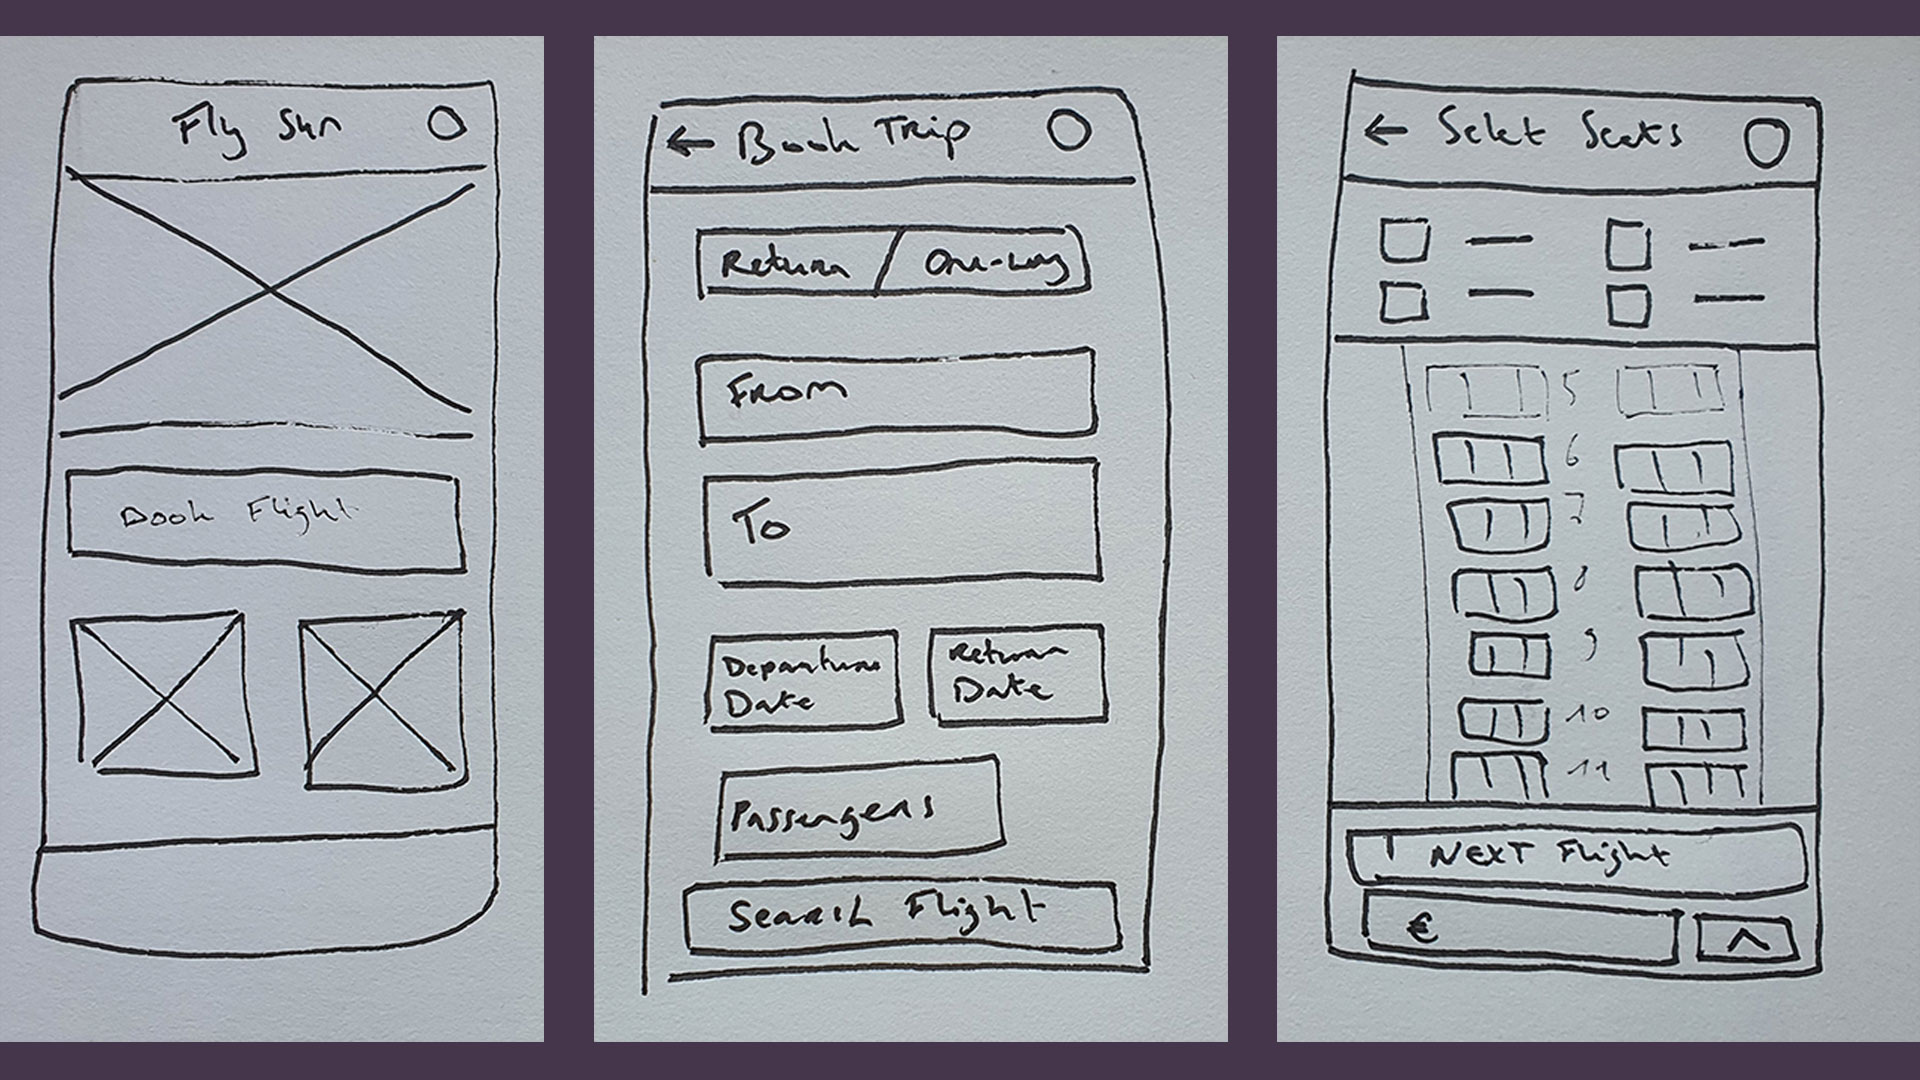 Fly Sun
Book Flight
← Book Trip
Return / One-way
From
To
Departure
Date
Return
Date
Passengers
Search Flight
← Select Seats
5
6
7
8
9
10
11
NEXT Flight
€